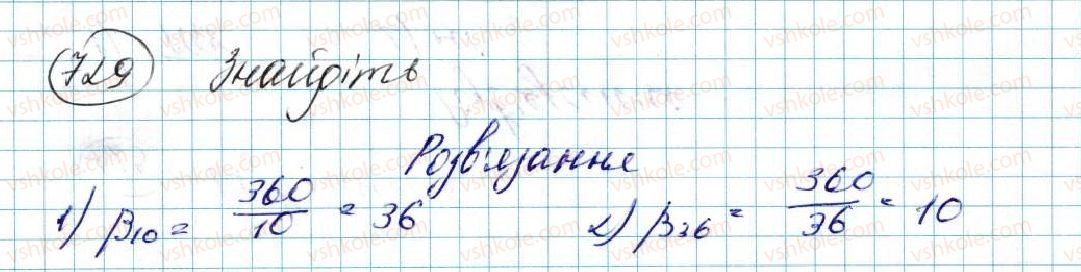 729 Знайдіть
Розв'язання
1) β₁₀ = 360/10 = 36 2) β₃₆ = 360/36 = 10